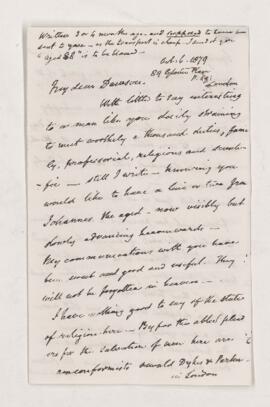 Written 3 or 4 months ago and supposed to have been
sent to you — as the transport is cheap I send it you
"aged 88" is to be blamed —
Oct. 6. 1879
89 Place
London
My dear Dawson
With little to say interesting
to a man like you daily straining
to meet worthily a thousand duties, fami-
ly, professorial, religious and scienti-
fic — still I write — knowing you
would like to have a line or two from
Johannes the aged — now visibly but
slowly advancing heavenwards —
My communications with you have
been sweet and good and useful. They
will not be forgotten in heaven —
I have nothing good to say of the state
of religion here — By far the ablest plead-
ers for the salvation of men here are
nonconformists Oswald Dykes & Parker
in London